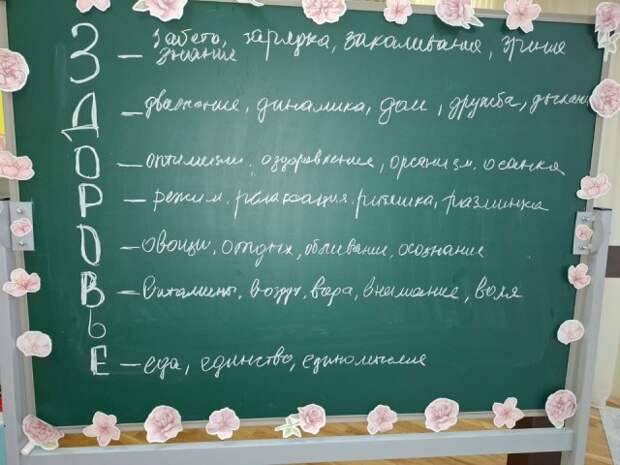 З – забота, зарядка, закаливание, зрение
знание
Д – движение, динамика, дом, дружба, дыхание
О – оптимизм, оздоровление, организм, осанка
Р – режим, релаксация, ритмика, разминка
О – овощи, отдых, обливание, осознание
В – витамины, воздух, вера, внимание, воля
Ь
Е – еда, единство, единомыслие